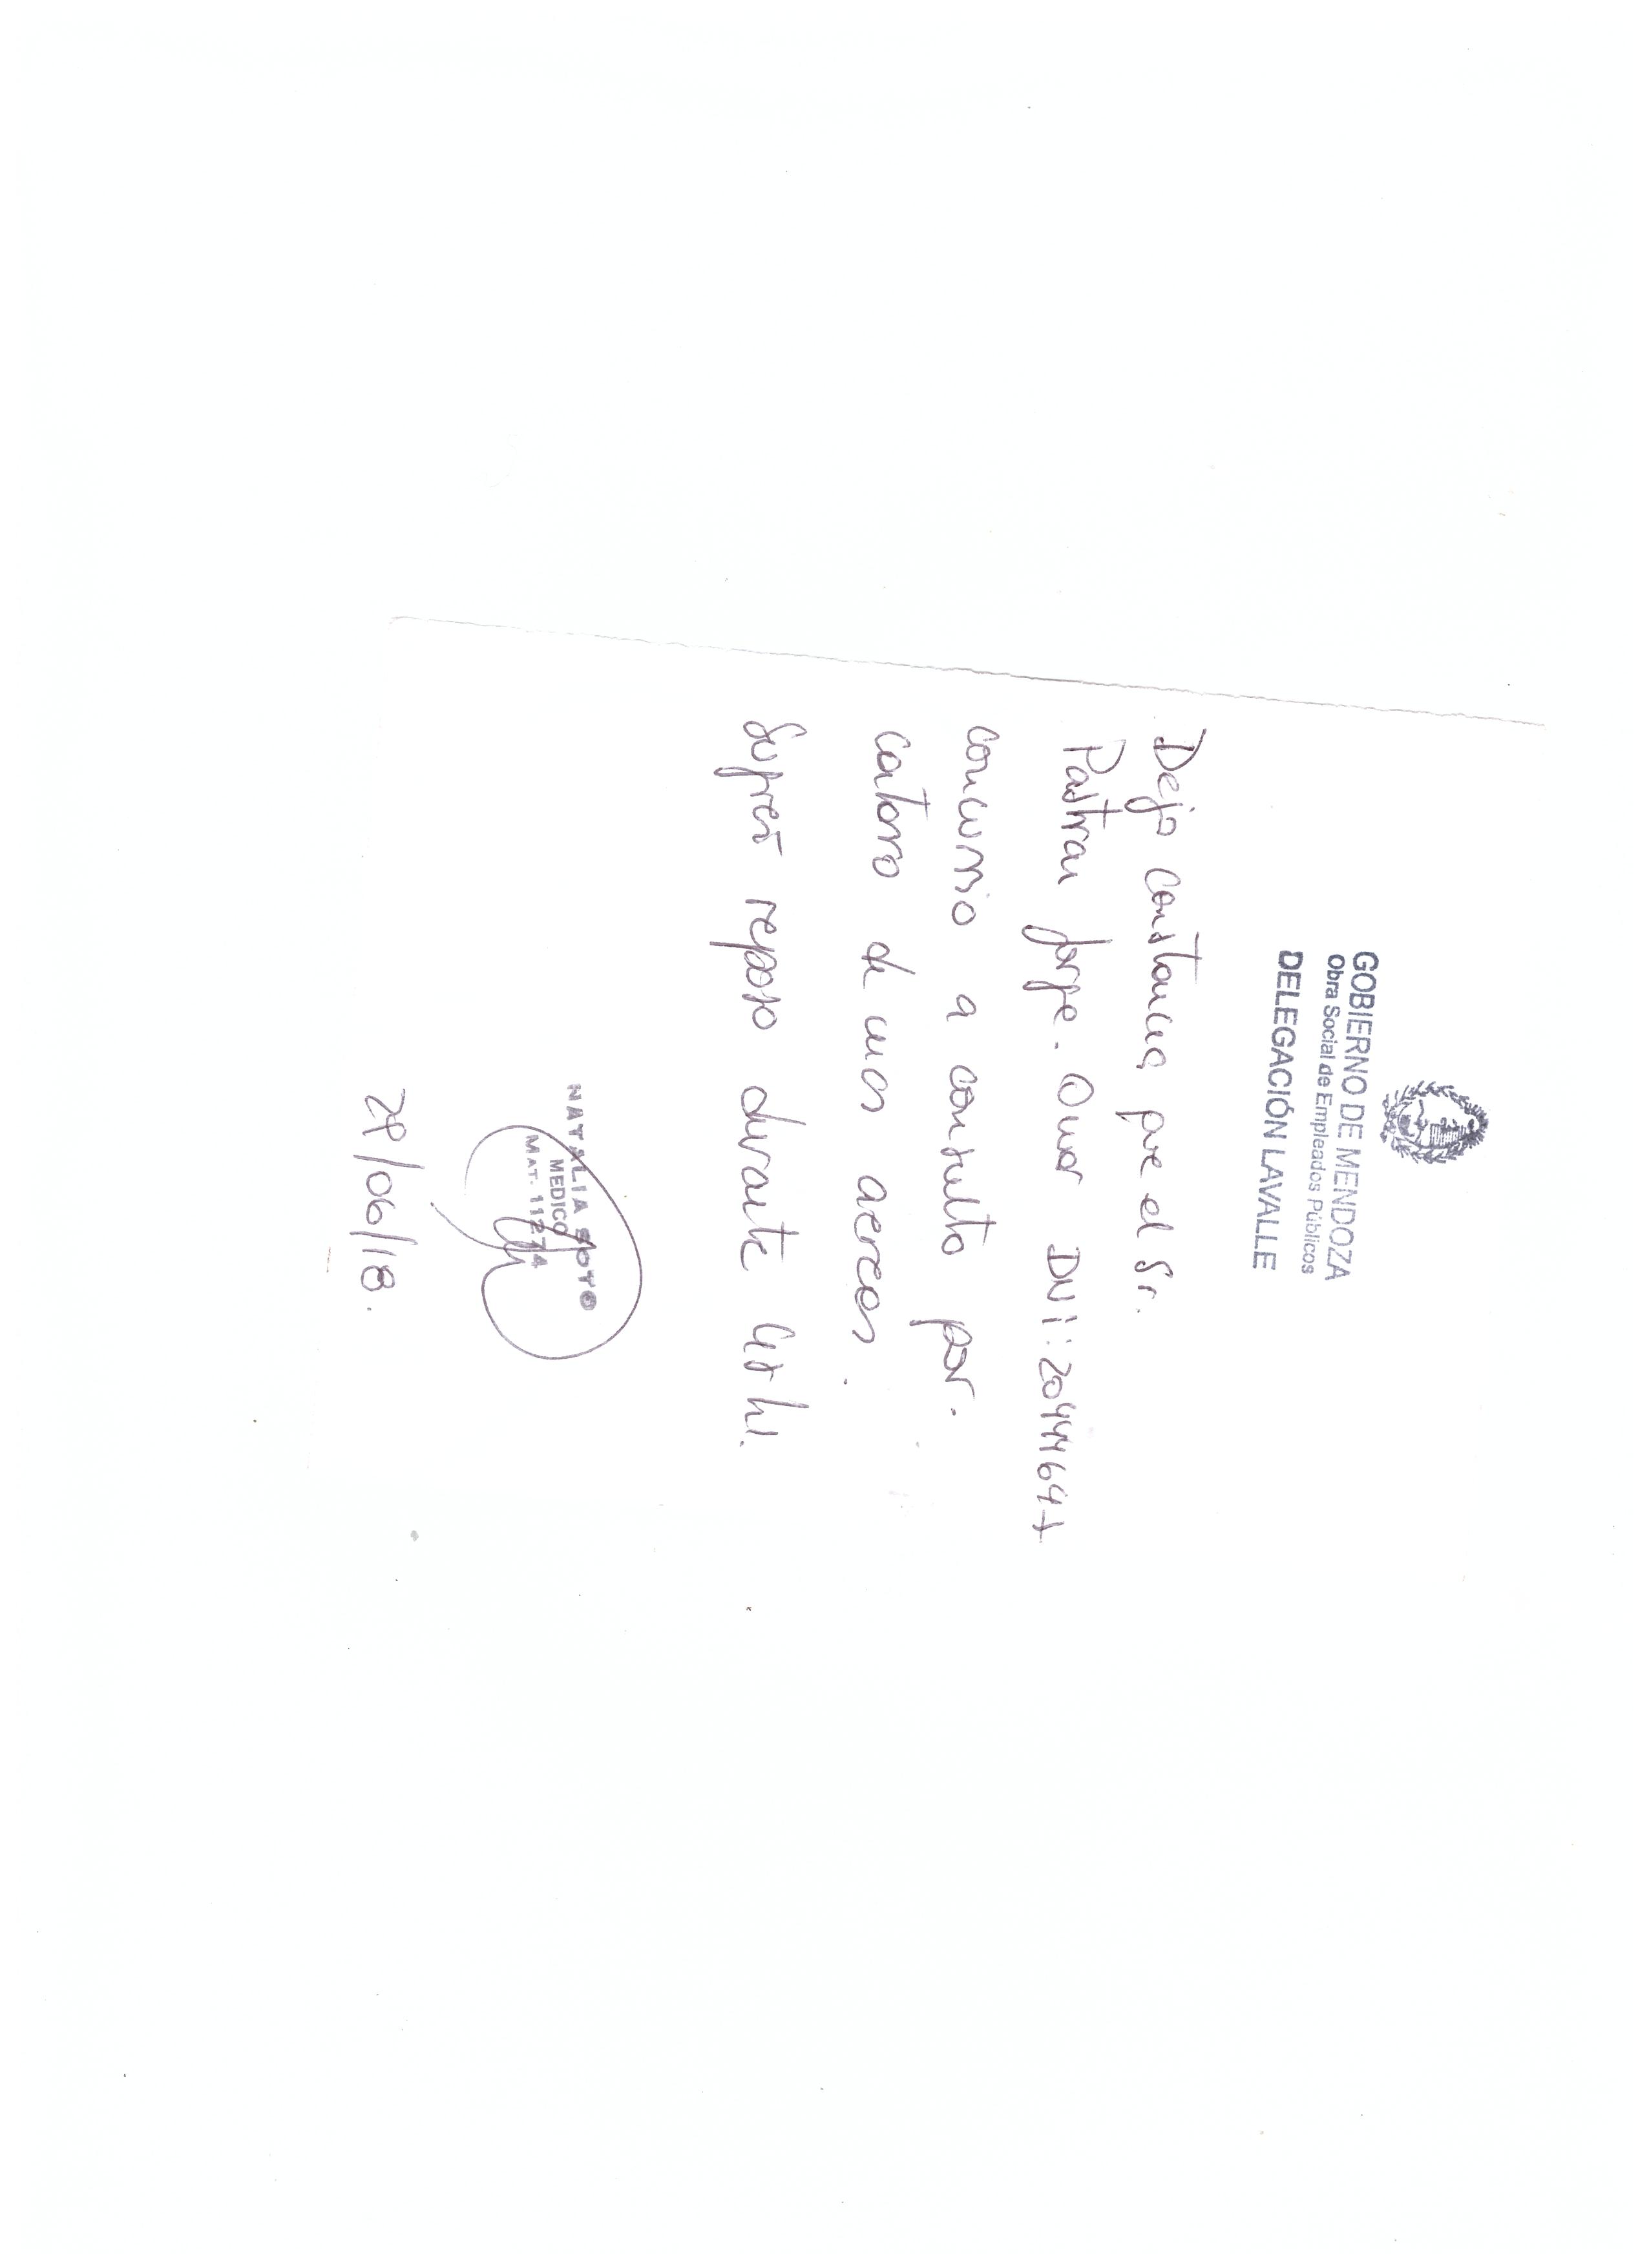 GOBIERNO DE MENDOZA
Obra Social de Empleados Públicos
DELEGACIÓN LAVALLE
Dejo constancia que el Sr.
Pastran Jorge Omar DNI: 20444647
concurrio a consulta por
catarro de vias aereas.
Sugiero reposo durante hs.
NATALIA SOTO
MEDICO
MAT. 11274
/06/18.